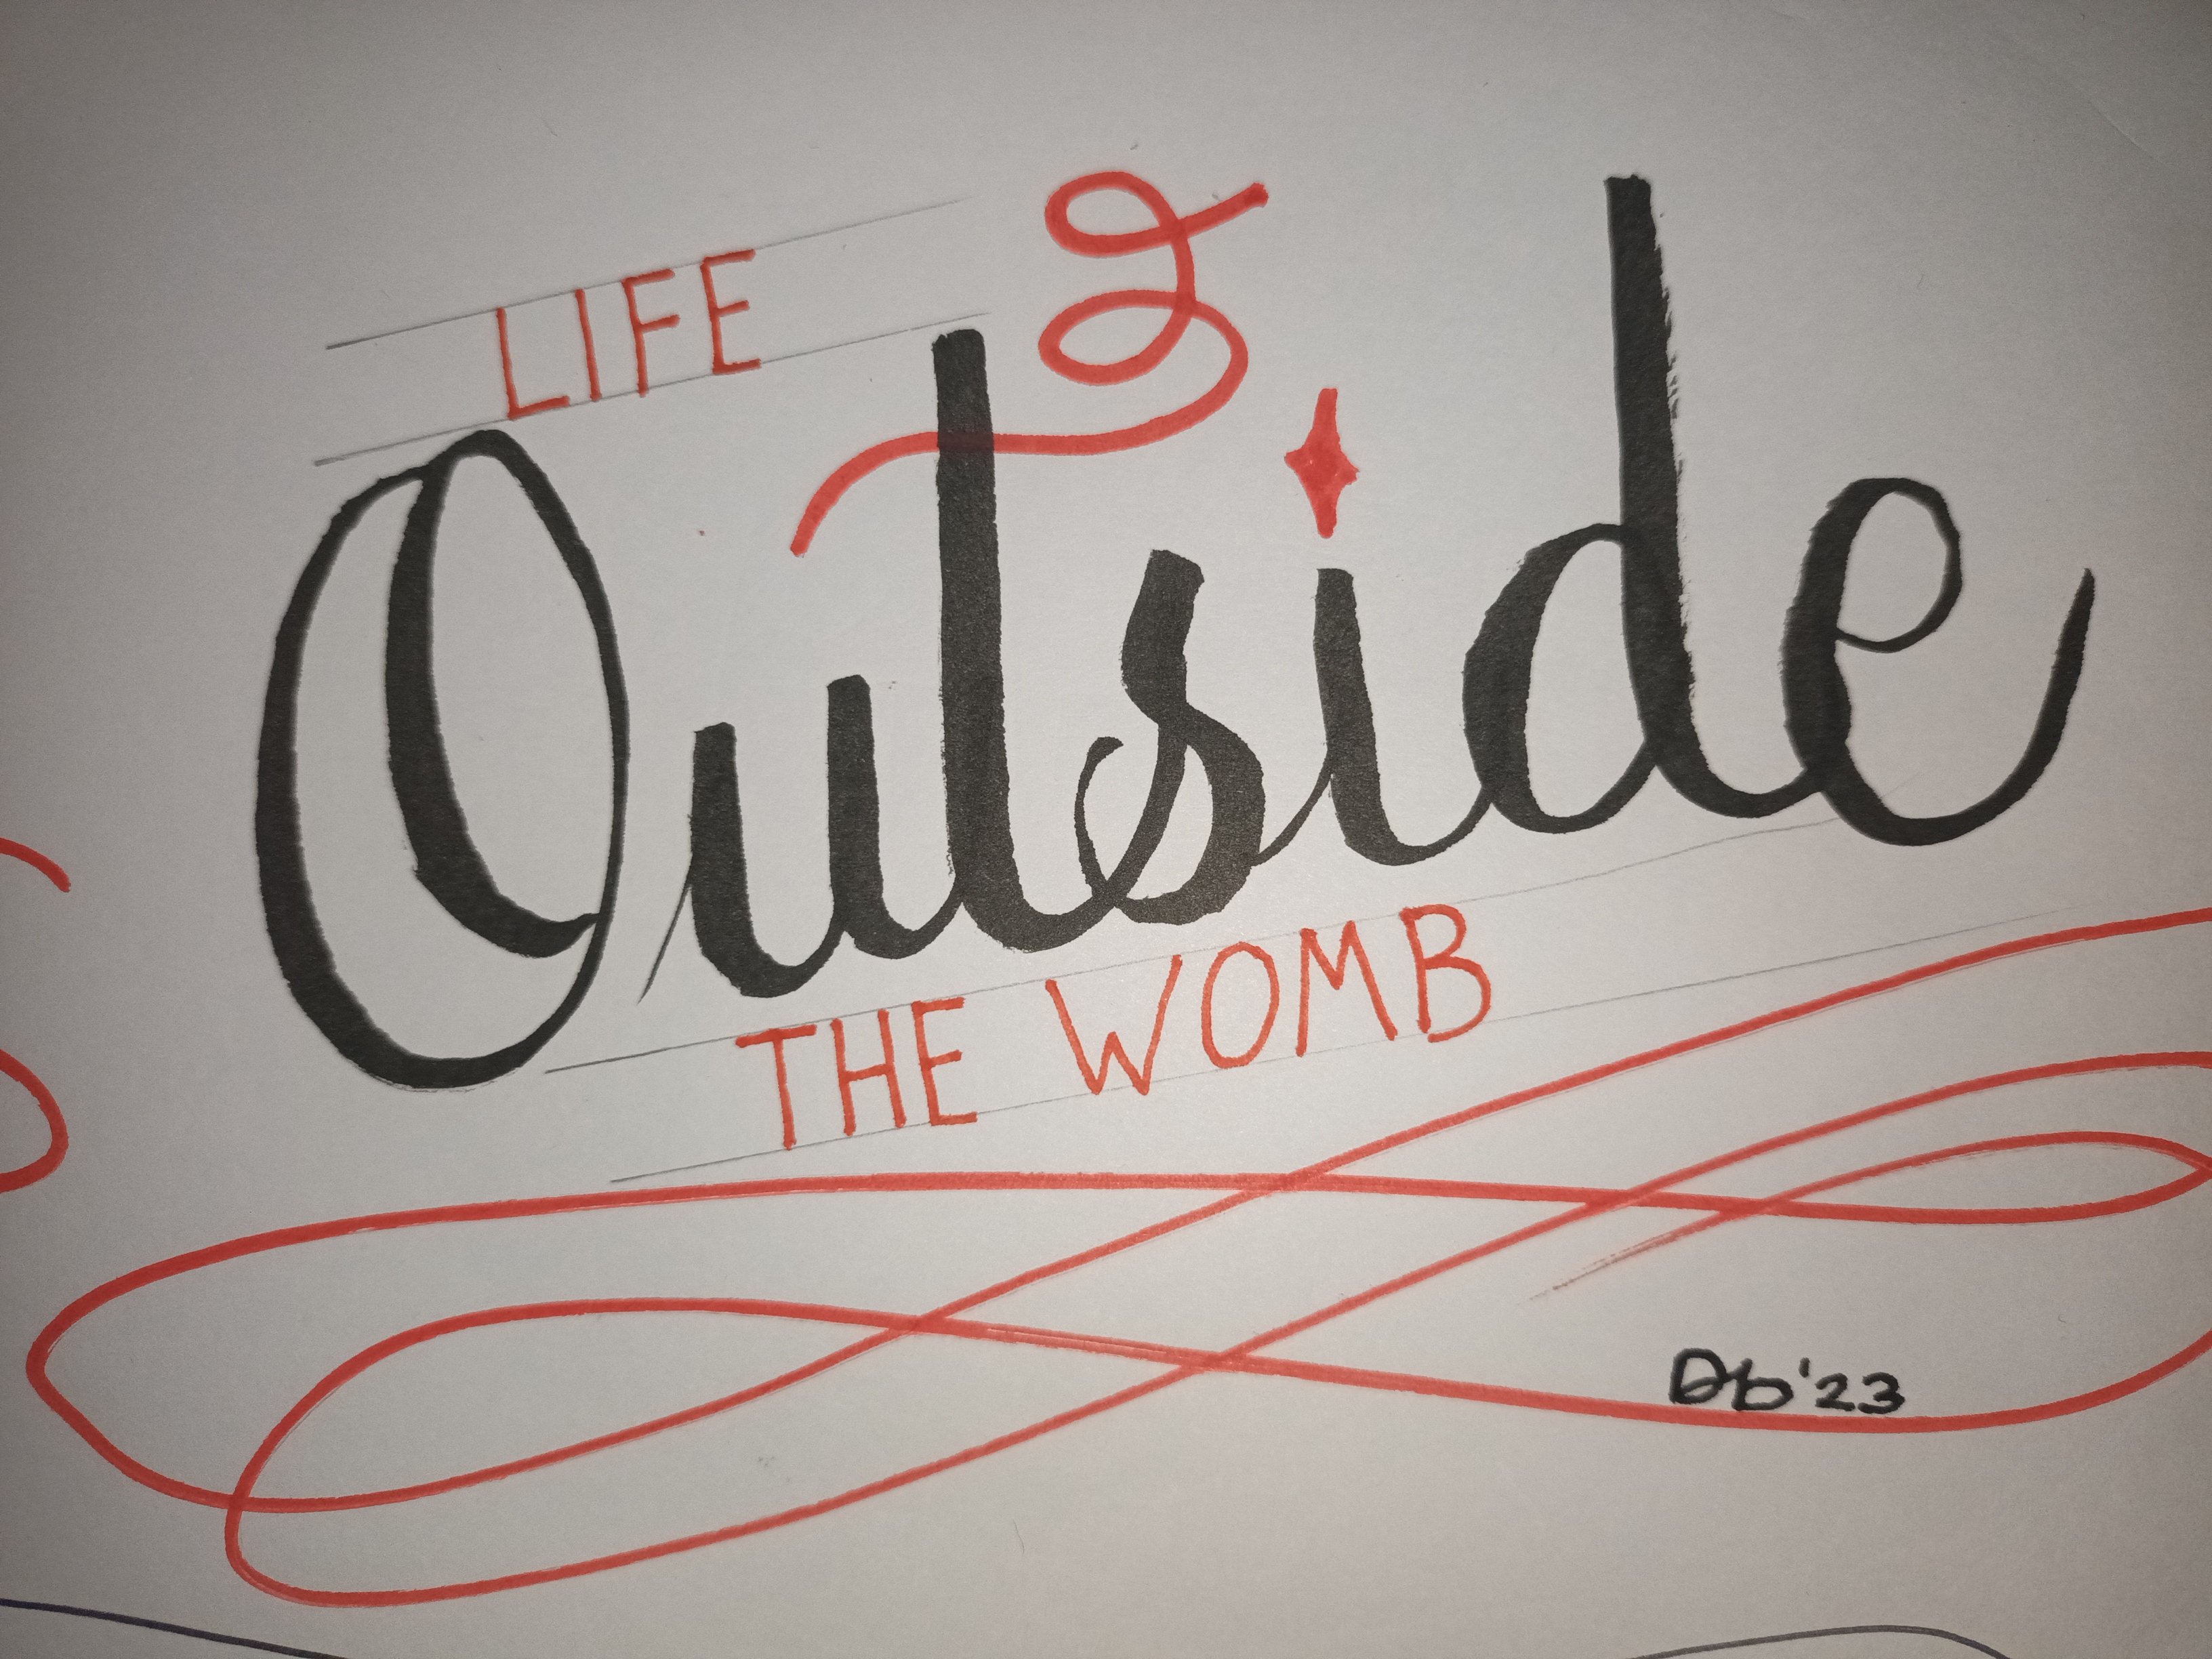 LIFE
Outside
THE WOMB
Db '23